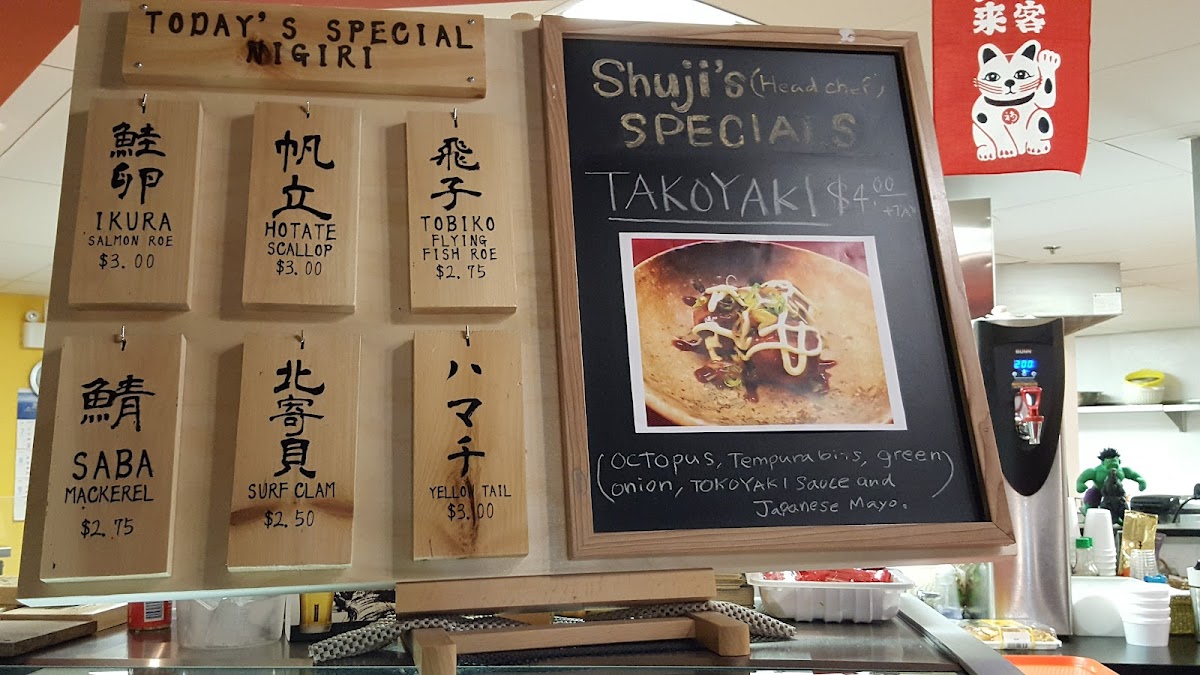 TODAY'S SPECIAL
NIGIRI
鮭
卵
IKURA
SALMON ROE
$3.00
帆
立
HOTATE
SCALLOP
$3.00
飛
子
TOBIKO
FLYING
FISH ROE
$2.75
鯖
SABA
MACKEREL
$2.75
北
寄
貝
SURF CLAM
$2.50
ハ
マ
チ
YELLOW TAIL
$3.00
Shuji's (Head chef)
SPECIALS
TAKOYAKI $4.00
+TAX
(OCTOPUS, Tempura bits, green
onion, TOKOYAKI Sauce and
Japanese Mayo.)
来客
福
BUNN
200